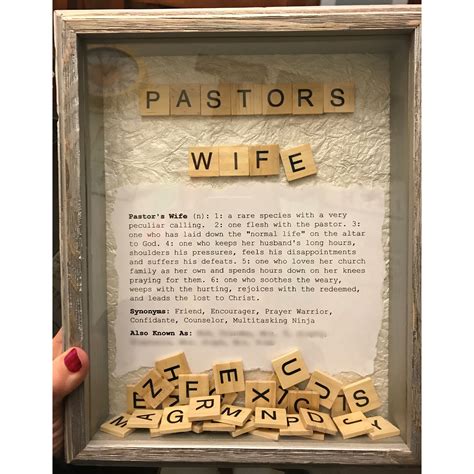 PASTORS
WIFE
Pastor's Wife (n): 1: a rare species with a very
peculiar calling. 2: one flesh with the pastor. 3:
one who has laid down the "normal life" on the altar
to God. 4: one who keeps her husband's long hours,
shoulders his pressures, feels his disappointments
and suffers his defeats. 5: one who loves her church
family as her own and spends hours down on her knees
praying for them. 6: one who soothes the weary,
weeps with the hurting, rejoices with the redeemed,
and leads the lost to Christ.
Synonyms: Friend, Encourager, Prayer Warrior,
Confidante, Counselor, Multitasking Ninja
Also Known As:
H
U
N
F
F
E
E
X
U
S
M
A
R
M
N
D
J
Y